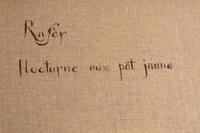 Rafèr
Nocturne aux pôt jaune